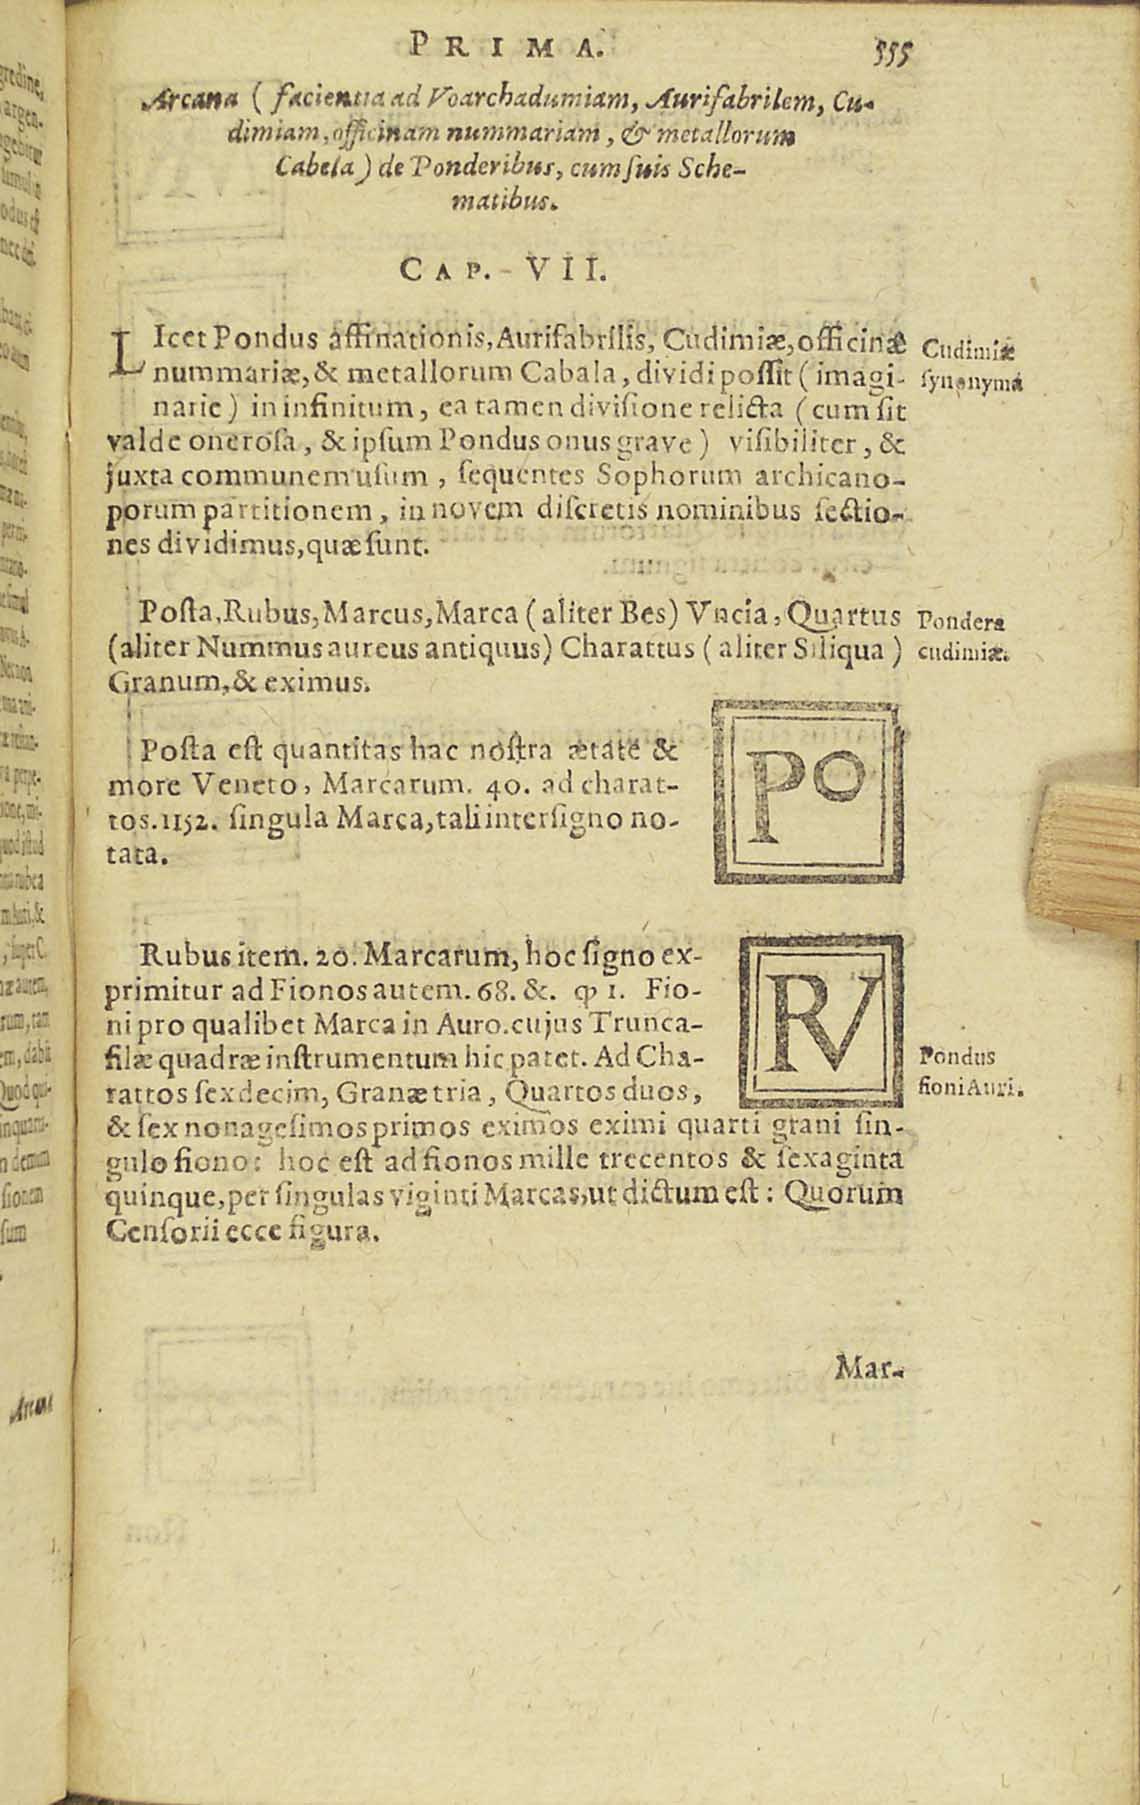 PRIMA. 555
Arcana ( facientia ad Voarchadumiam, Aurifabrilem, Cu-
dimiam, officinam nummariam, & metallorum
Cabela ) de Ponderibus, cum suis Sche-
matibus.
CAP. VII.
LIcet Pondus affinationis, Aurifabrilis, Cudimiæ, officinæ
nummariæ, & metallorum Cabala, dividi possit ( imagi-
narie ) in infinitum, ea tamen divisione relicta ( cum sit
valde onerosa, & ipsum Pondus onus grave ) visibiliter, &
juxta communem usum, sequentes Sophorum archicano-
porum partitionem, in novem discretis nominibus sectio-
nes dividimus, quæ sunt.
Cudimiæ
synonyma
Posta, Rubus, Marcus, Marca ( aliter Bes) Vncia, Quartus
(aliter Nummus aureus antiquus) Charattus ( aliter Siliqua )
Granum, & eximus.
Pondera
cudimiæ.
Posta est quantitas hac nostra ætate &
more Veneto, Marcarum. 40. ad charat-
tos. 1152. singula Marca, tali intersigno no-
tata.
PO
Rubus item. 20. Marcarum, hoc signo ex-
primitur ad Fionos autem. 68. &. qp 1. Fio-
ni pro qualibet Marca in Auro. cujus Trunca-
filæ quadræ instrumentum hic patet. Ad Cha-
rattos sexdecim, Granæ tria, Quartos duos,
& sex nonagesimos primos eximos eximi quarti grani sin-
gulo fiono: hoc est ad fionos mille trecentos & sexaginta
quinque, per singulas viginti Marcas, ut dictum est: Quorum
Censorii ecce figura.
RV
Pondus
fioni Auri.
Mar-